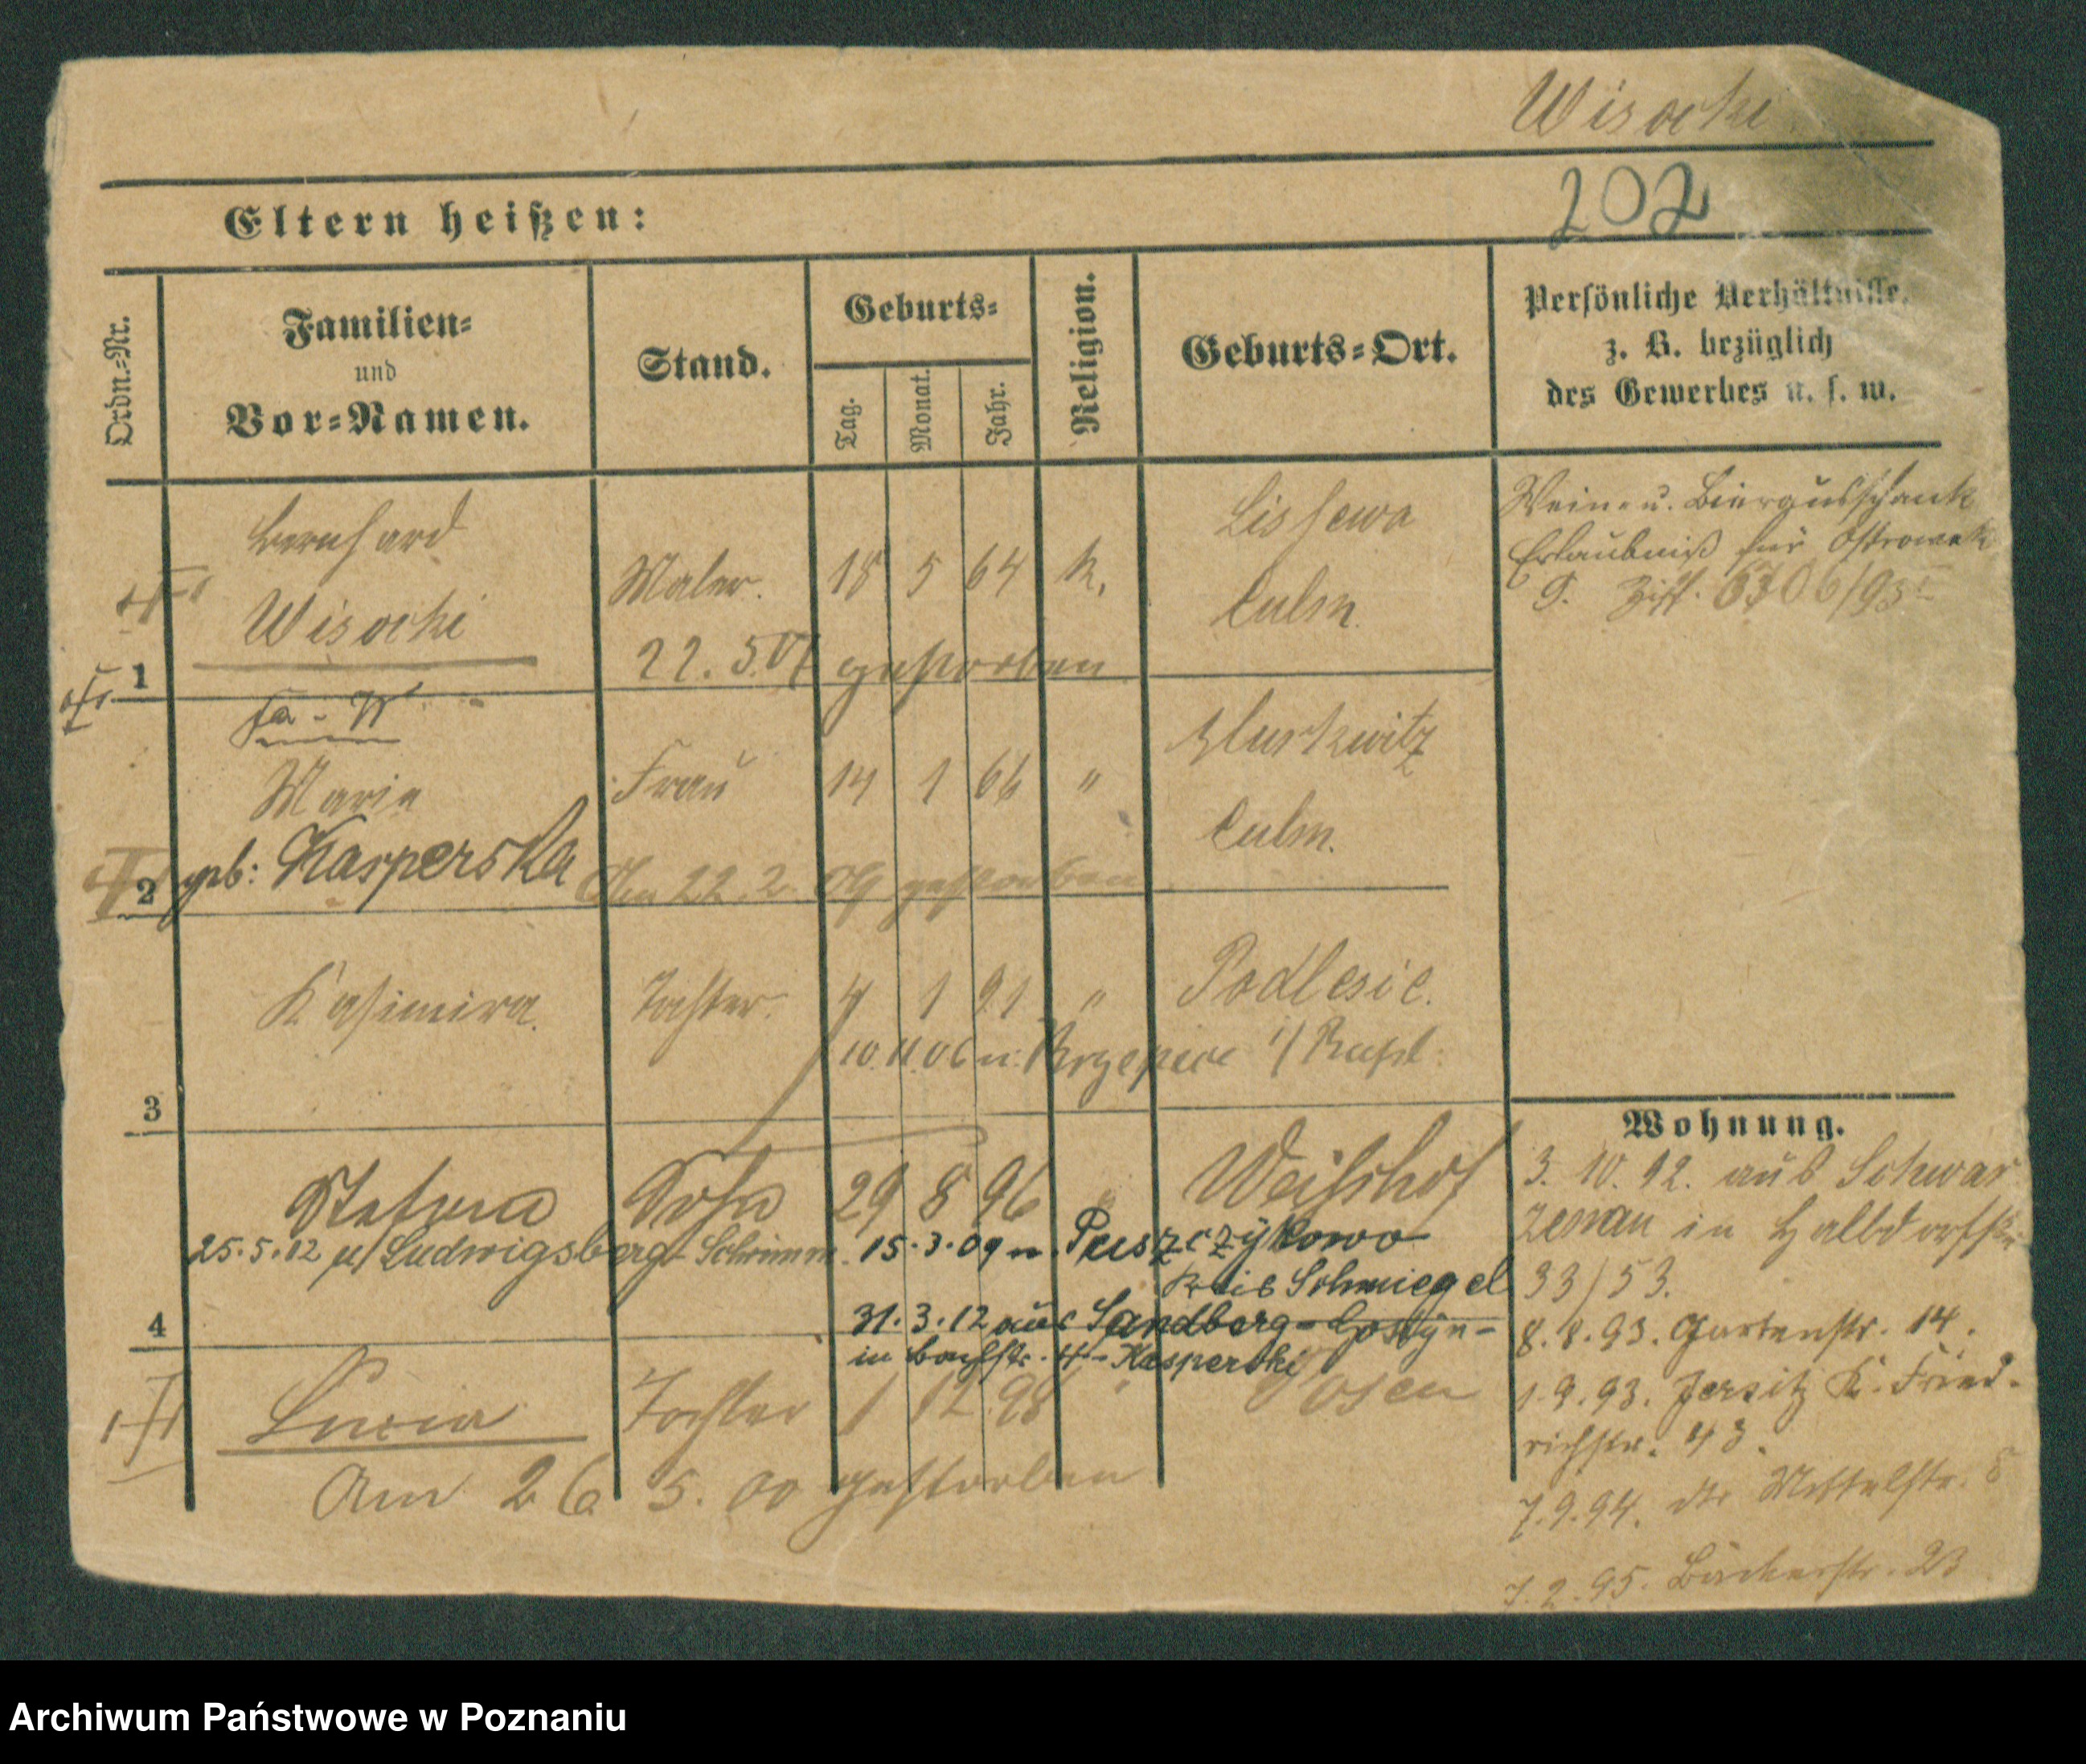 Wisocki
202
Eltern heißen:
Ordn.-Nr.
Familien-
und
Vor-Namen.
Stand.
Geburts-
Tag.
Monat.
Jahr.
Religion.
Geburts-Ort.
Persönliche Verhältnisse,
z. B. bezüglich
des Gewerbes u. s. w.
Bernhard
Wisocki
Maler. 18 5 64 k.
Lissewo
Culm.
Wein- u. Bierausschank
Erlaubniß für Ostrowek
9. 6306/95
22. 5. 07 gestorben
1
Marie
geb: Kasperska
Frau 14 1 66 "
Culm.
Am 22. 2. 09 gestorben
2
Kasimira. Tochter. 4 1 91 " Podlesie.
10. 11. 06 n.
3
Stefan Sohn 29 8 96 " Weishof
25. 5. 12 Ludwigsberg - Schrimm. 15. 3. 09 n. Puszczykowo
Kreis Schmiegel
31. 3. 12 aus Sandberg - Gostyn -
in Bachstr. 4 - Kasperski
4
Lucia Tochter 1 12 98 " Posen
Am 26 5. 00 gestorben
Wohnung.
3. 10. 92. aus Schwar
zenau in Halbdorfstr.
33/53.
8. 8. 93. Gartenstr. 14.
1. 9. 93. Jersitz K. Fried-
richstr. 43.
7. 9. 94. Mittelstr. 8
7. 2. 95. Bäckerstr. 23
Archiwum Państwowe w Poznaniu